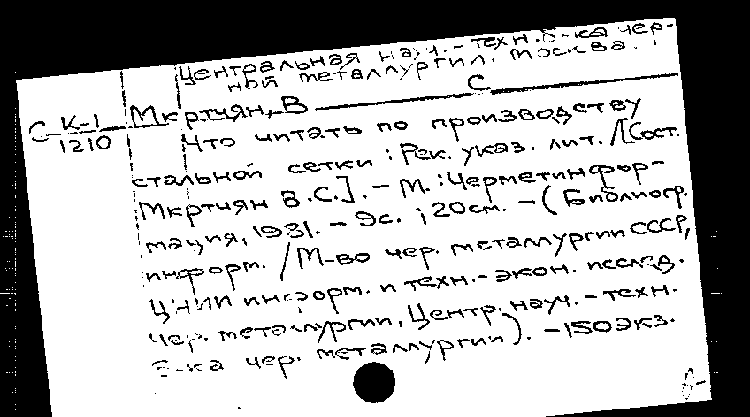 Центральная науч.-техн. б-ка чер-
ной металлургии. Москва.
С К-1/1210 Мкртчян, В С
Что читать по производству
стальной сетки : Рек. указ. лит. /[Сост.
Мкртчян В.С.]. – М. : Черметинфор-
мация, 1981. – 9с. ; 20см. – (Библиогр.
информ. / М-во чер. металлургии СССР,
ЦНИИ информ. и техн.-экон. исслед.
чер. металлургии, Центр. науч.-техн.
б-ка чер. металлургии). – 150 экз.